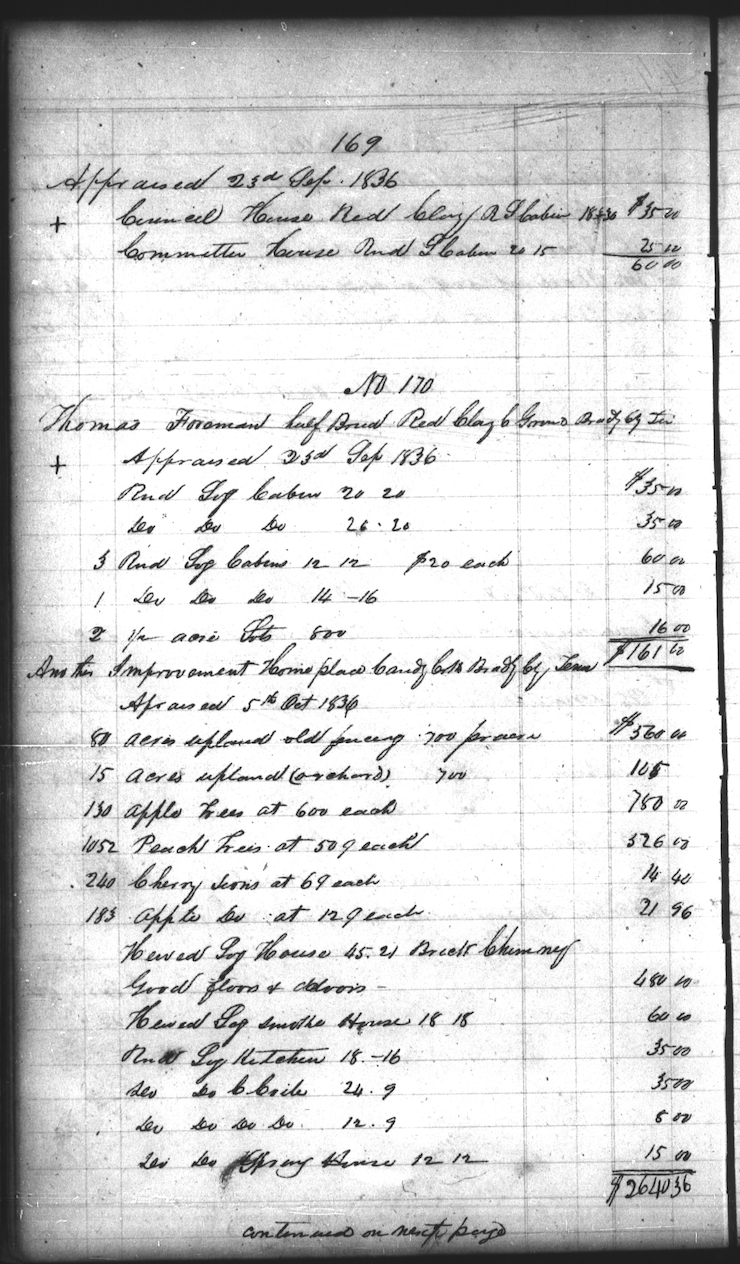 169
Appraised 23d Sep. 1836
+ Council House Red Clay R L Cabin 18 30 $35 00
Committee House Rnd L Cabin 20 15 25 00
60 00
No 170
Thomas Foreman half Breed Red Clay C Ground Bradly Cy Ten
+ Appraised 23d Sep 1836
Rnd Log Cabin 20 20 $35 00
Do Do Do 26 . 20 35 00
3 Rnd Log Cabins 12 12 $20 each 60 00
1 Do Do Do 14 - 16 15 00
2 1/2 acre Lots 800 16 00
$161 00
Another Improvement Home place Candy Crk Bradly Cy Tenn
Apraised 5th Oct 1836
80 acres upland old fencing 700 per acre $560 00
15 acres upland (orchard) 700 105
130 apple trees at 600 each 780 00
1052 Peach trees at 50 ¢ each 526 00
240 Cherry scions at 6¢ each 14 40
183 apple Do at 12¢ each 21 96
Hewed Log House 45. 21 Brick Chimney
Good floors & doors - 480 00
Hewed Log smoke House 18 18 60 00
Rnd Log Kitchen 18 - 16 35 00
Do Do C Crib 24 . 9 35 00
Do Do Do Do 12 . 9 8 00
Do Do Spring House 12 12 15 00
$2640 36
continued on next page